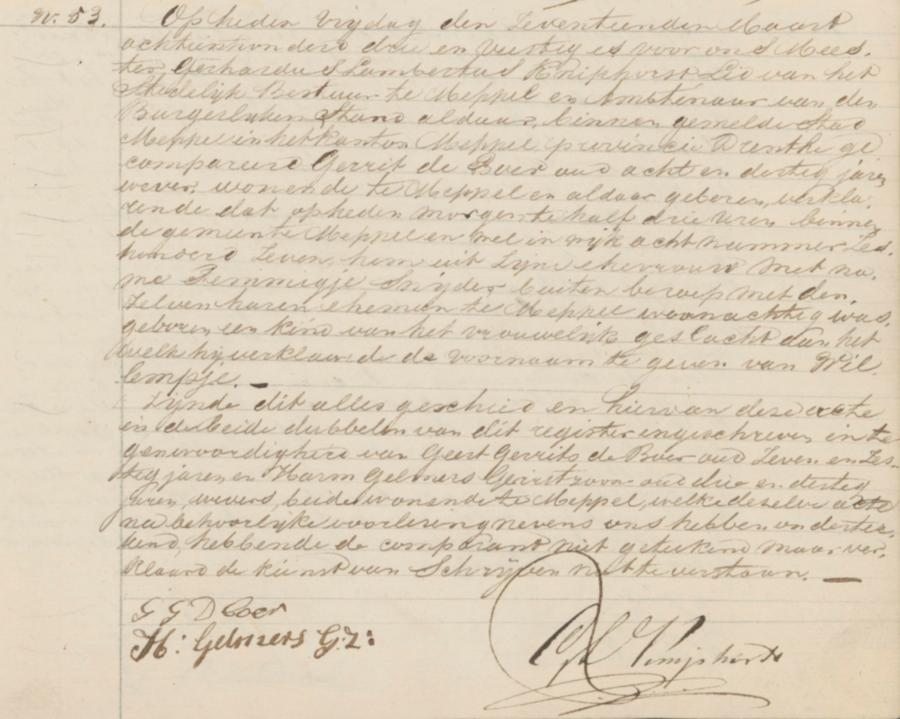 N. 53. Op heden Vrijdag den Zeventienden Maart
achttienhonderd drie en veertig is voor ons Mees-
ter Gerhardus Lambertus Kniphorst Lid van het
Stedelijk Bestuur te Meppel en Ambtenaar van den
Burgerlijken Stand aldaar, binnen gemelde Stad
Meppel in het kanton Meppel provincie Drenthe ge
compareerd Gerrit de Boer oud acht en dertig jaren
wever, wonende te Meppel en aldaar geboren, verkla-
rende dat op heden morgen te half drie uren binnen
de gemeente Meppel en wel in wijk acht nummer Zes
honderd Zeven, hem uit Zijne ehevrouw met na-
me Femmigje Snijder buiten beroep met den-
zelven haren eheman te Meppel woonachtig was
geboren een kind van het vrouwelijk geslacht dan het
welk hij verklaarde de voornaam te geven van Wil
lempje.
Zijnde dit alles geschied en hiervan deze acte
in de beide dubbelen van dit register ingeschreven in te
genwoordigheid van Geert Gerrits de Boer oud Zeven en Zes-
tig jaren en Harm Gelmers Gerritzoon oud drie en dertig
jaren, wevers, beide wonende te Meppel, welke dezelve acte
na behoorlijke voorlezing nevens ons hebben onderteē-
kend, hebbende de comparant niet getekend maar ver-
klaard de kunst van Schrijven niet te verstaan.
G G D boer
H: Gelmers G.Z:
GL Kniphorst